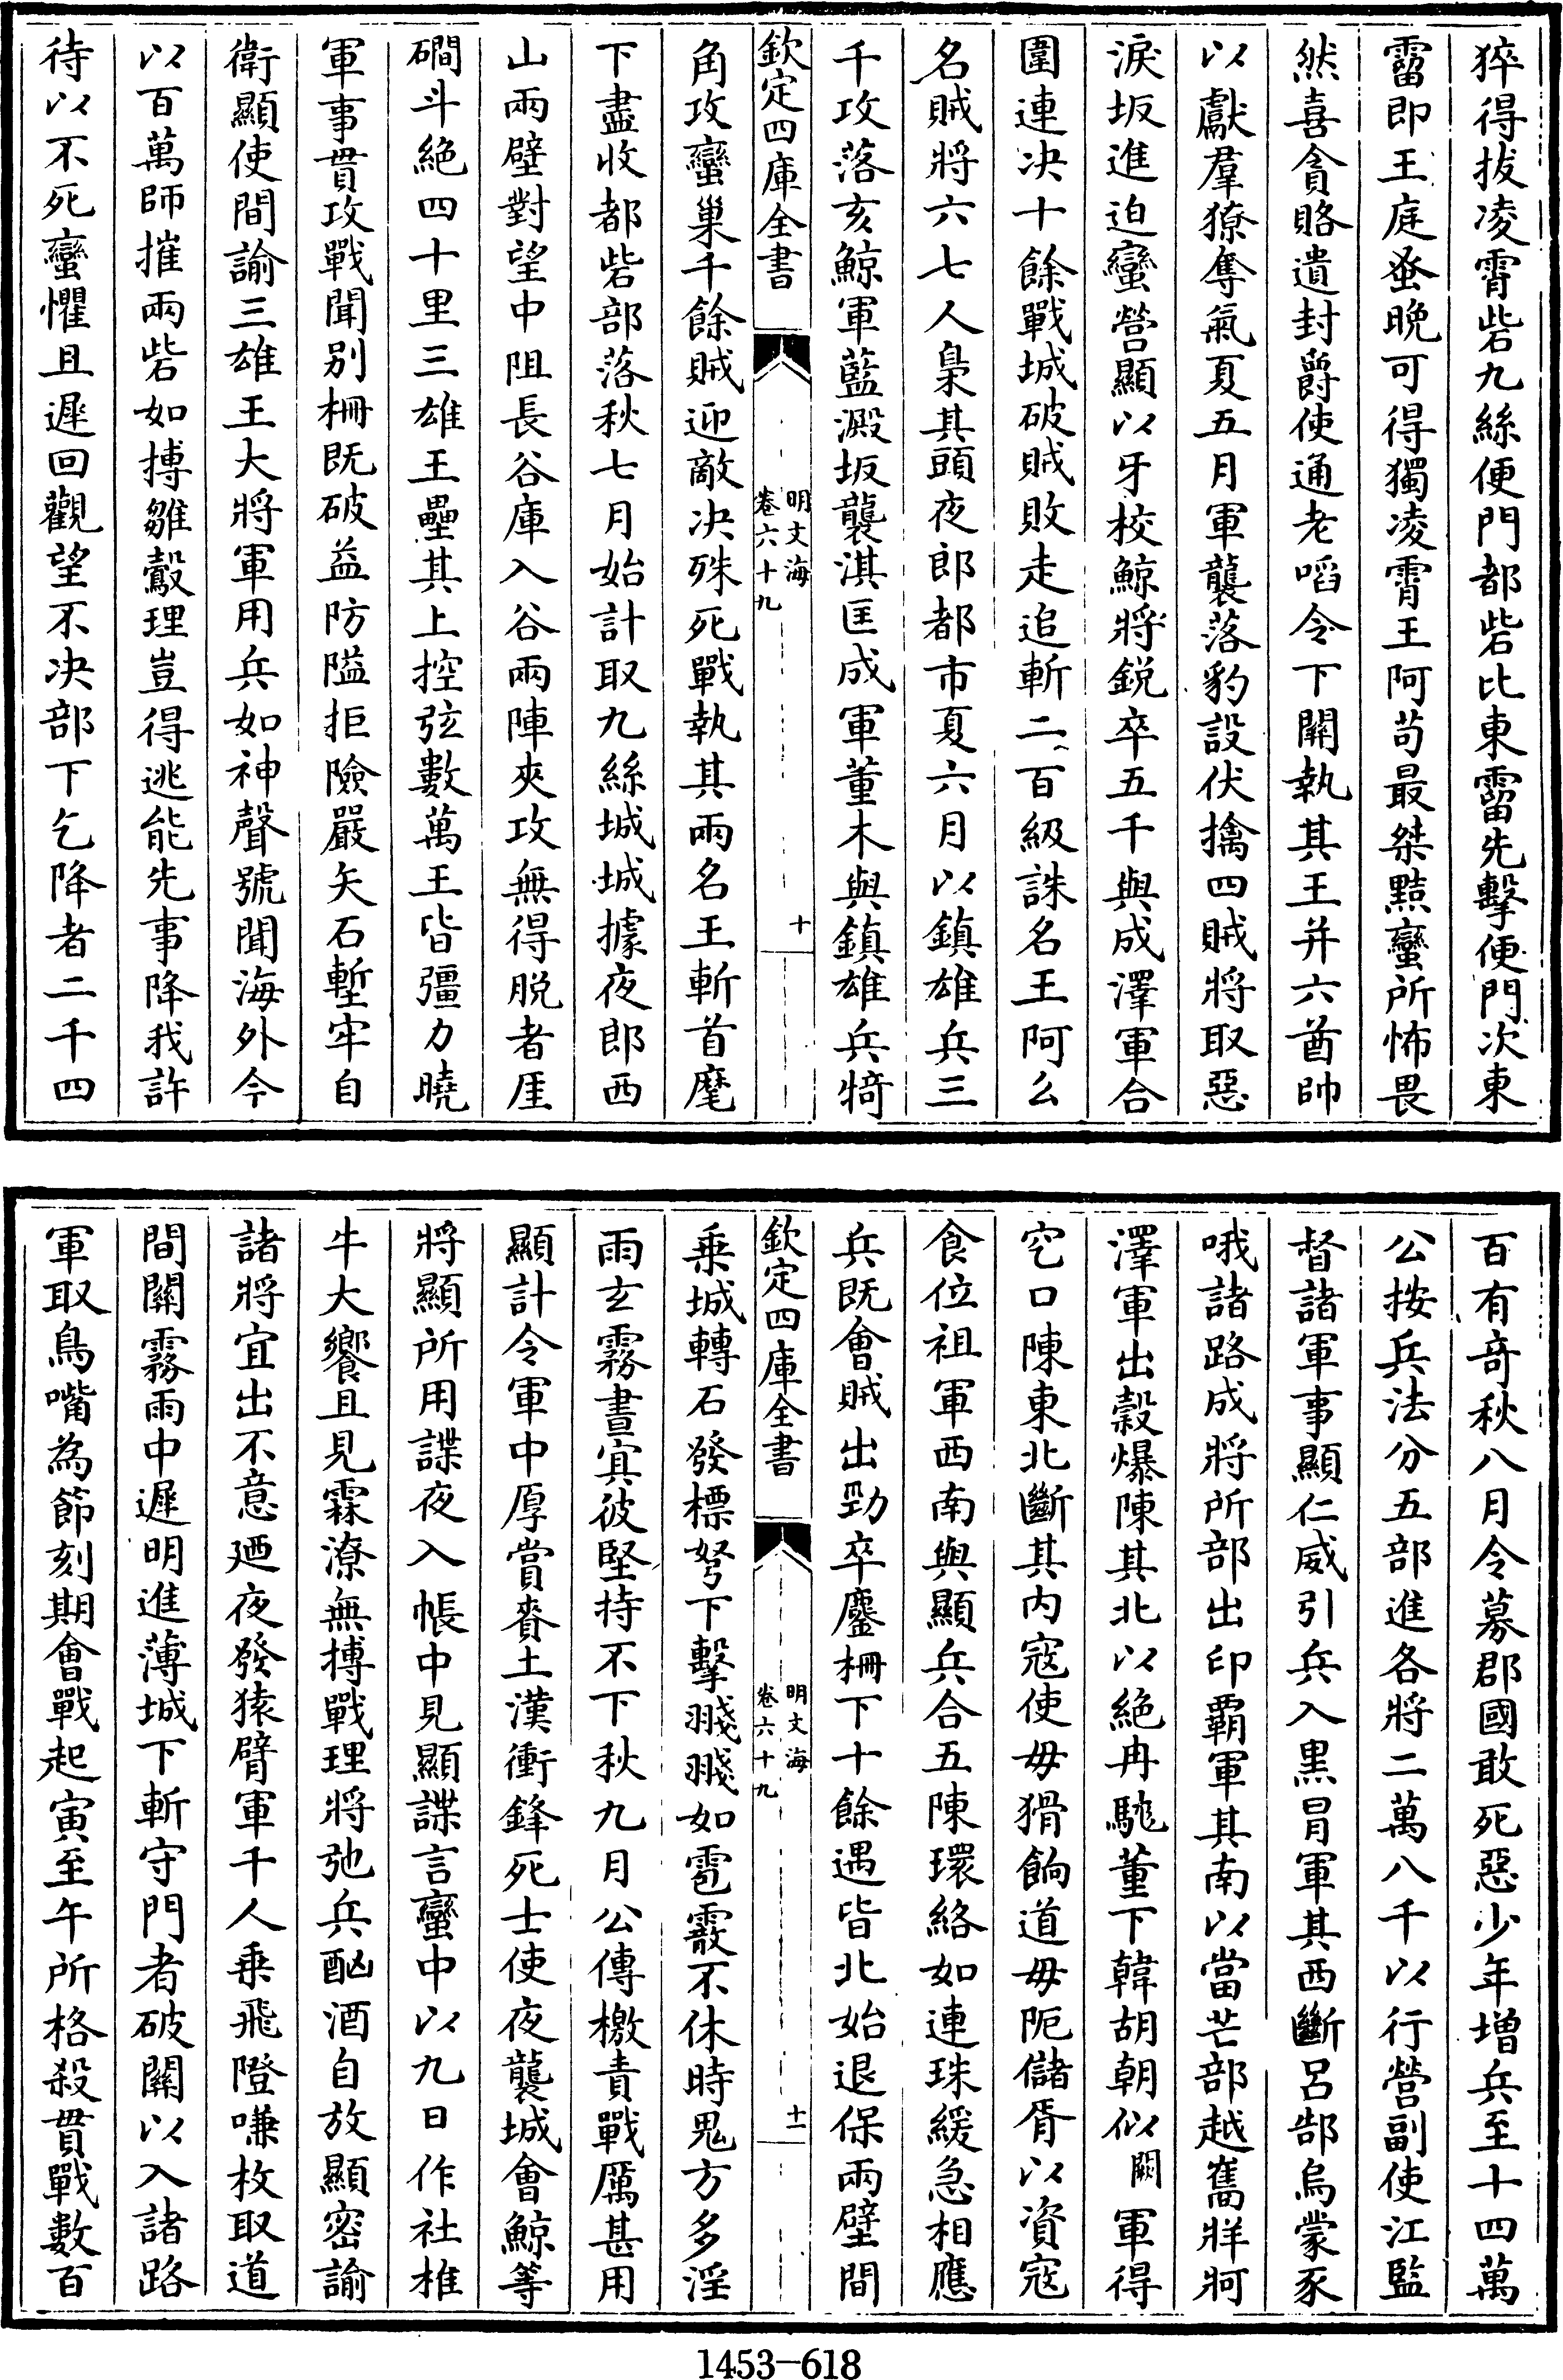 猝得拔凌霄砦九絲便門都砦比東霤先擊便門次東
霤即王庭蚤晚可得獨凌霄王阿苟最桀黠蠻所怖畏
然喜貪賂遺封爵使通老㗖令下關執其王并六酋帥
以獻羣獠奪氣夏五月軍襲落豹設伏擒四賊將取惡
淚坂進迫蠻營顯以牙校鯨將鋭卒五千與成澤軍合
圍連决十餘戰城破賊敗走追斬二百級誅名王阿么
名賊將六七人梟其頭夜郎都市夏六月以鎮雄兵三
千攻落亥鯨軍藍澱坂襲淇匡成軍董木與鎮雄兵犄
欽定四庫全書
明文海
卷六十九
十
角攻蠻巢千餘賊迎敵决殊死戰執其兩名王斬首麾
下盡收都砦部落秋七月始計取九絲城城據夜郎西
山兩壁對望中阻長谷庫入谷兩陣夾攻無得脱者厓
磵斗絶四十里三雄王壘其上控弦數萬王皆彊力曉
軍事貫攻戰聞别柵既破益防隘拒險嚴矢石塹牢自
衛顯使間諭三雄王大將軍用兵如神聲號聞海外今
以百萬師摧兩砦如搏雛鷇理豈得逃能先事降我許
待以不死蠻懼且遲回觀望不决部下乞降者二千四
百有竒秋八月令募郡國敢死惡少年增兵至十四萬
公按兵法分五部進各將二萬八千以行營副使江監
督諸軍事顯仁威引兵入黒冐軍其西斷吕郜烏蒙豕
哦諸路成將所部出印覇軍其南以當芒部越嶲牂牁
澤軍出穀爆陳其北以絶冉駹董下韓胡朝似闕軍得
穵口陳東北斷其内寇使毋猾餉道毋阨儲胥以資寇
食位祖軍西南與顯兵合五陳環絡如連珠緩急相應
兵既會賊出勁卒鏖柵下十餘遇皆北始退保兩壁間
欽定四庫全書
明文海
卷六十九
十一
乗城轉石發標弩下擊㦮㦮如雹霰不休時鬼方多淫
雨玄霧晝㝠彼堅持不下秋九月公傳檄責戰厲甚用
顯計令軍中厚賞賚土漢衝鋒死士使夜襲城會鯨等
將顯所用諜夜入帳中見顯諜言蠻中以九日作社椎
牛大饗且見霖潦無搏戰理將弛兵酗酒自放顯密諭
諸將宜出不意廼夜發猿臂軍千人乗飛隥嗛枚取道
間闗霧雨中遲明進薄城下斬守門者破關以入諸路
軍取鳥嘴為節刻期會戰起寅至午所格殺貫戰數百
1453—618